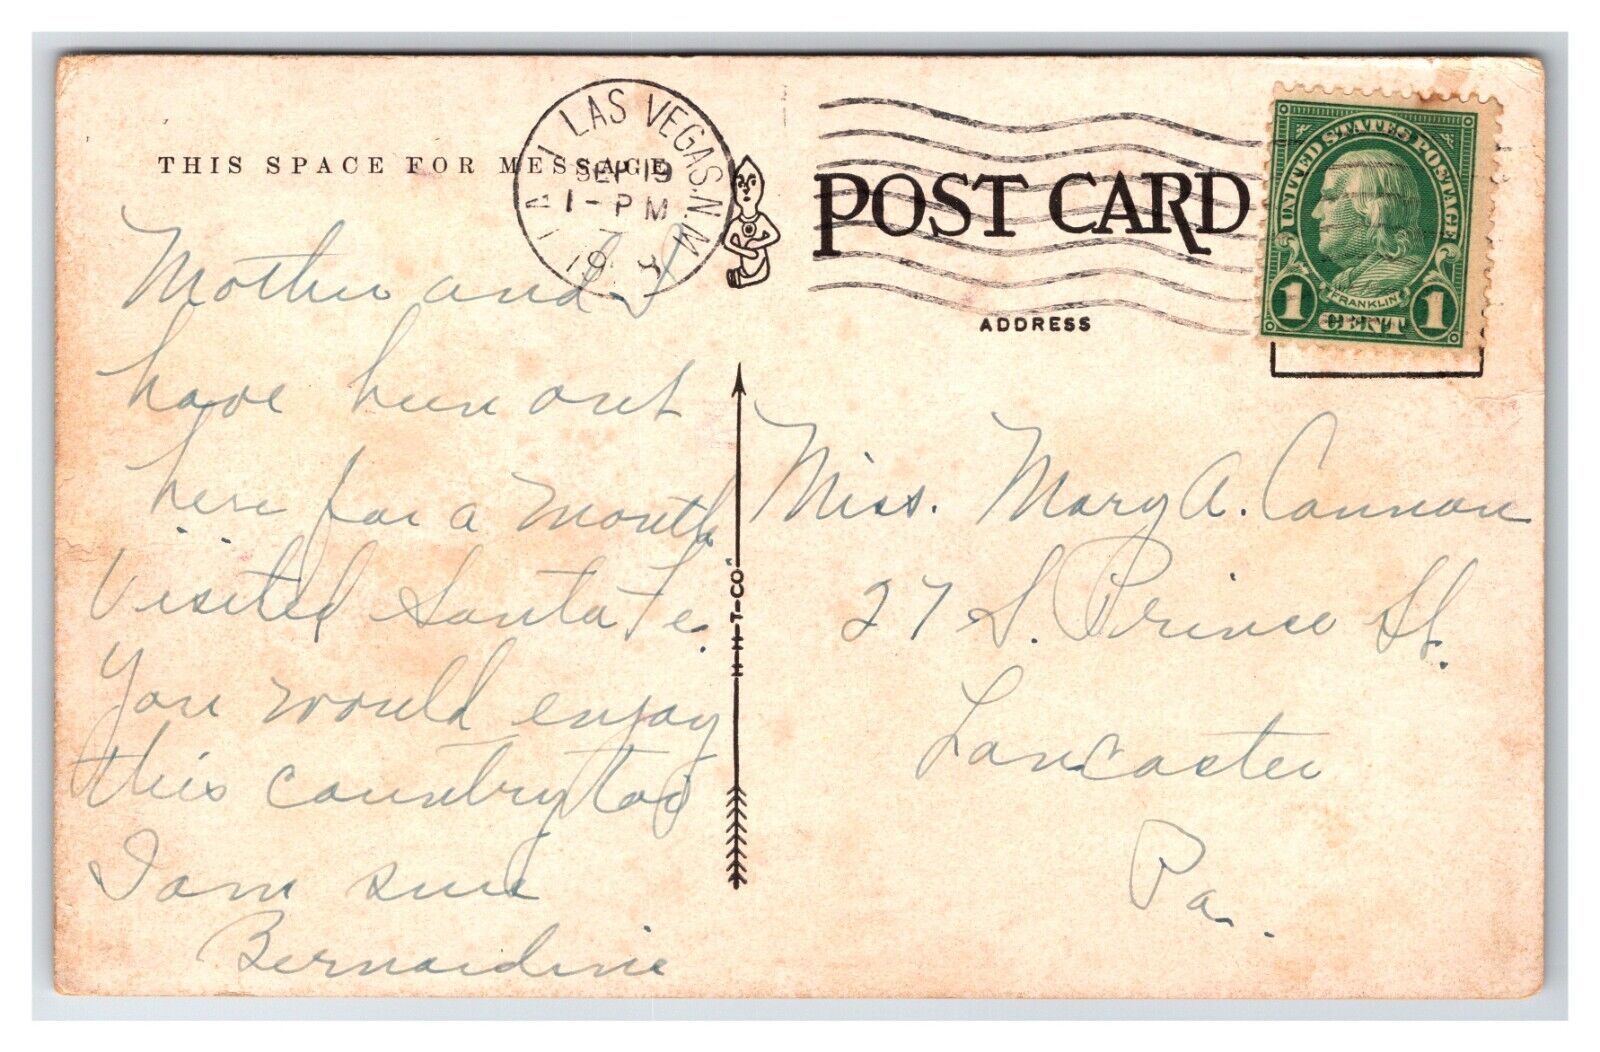 LAS VEGAS. N. M.
SEP 19
1 - PM
19
THIS SPACE FOR MESSAGE
POST CARD
ADDRESS
UNITED STATES POSTAGE
FRANKLIN
1 CENT 1
Mother and I
have been out
here for a month
Visited Santa Fe.
You would enjoy
this country too
I am sure
Bernardine
H-H-T-CO.
Miss. Mary A. Cannon
27 S. Prince St.
Lancaster
Pa.